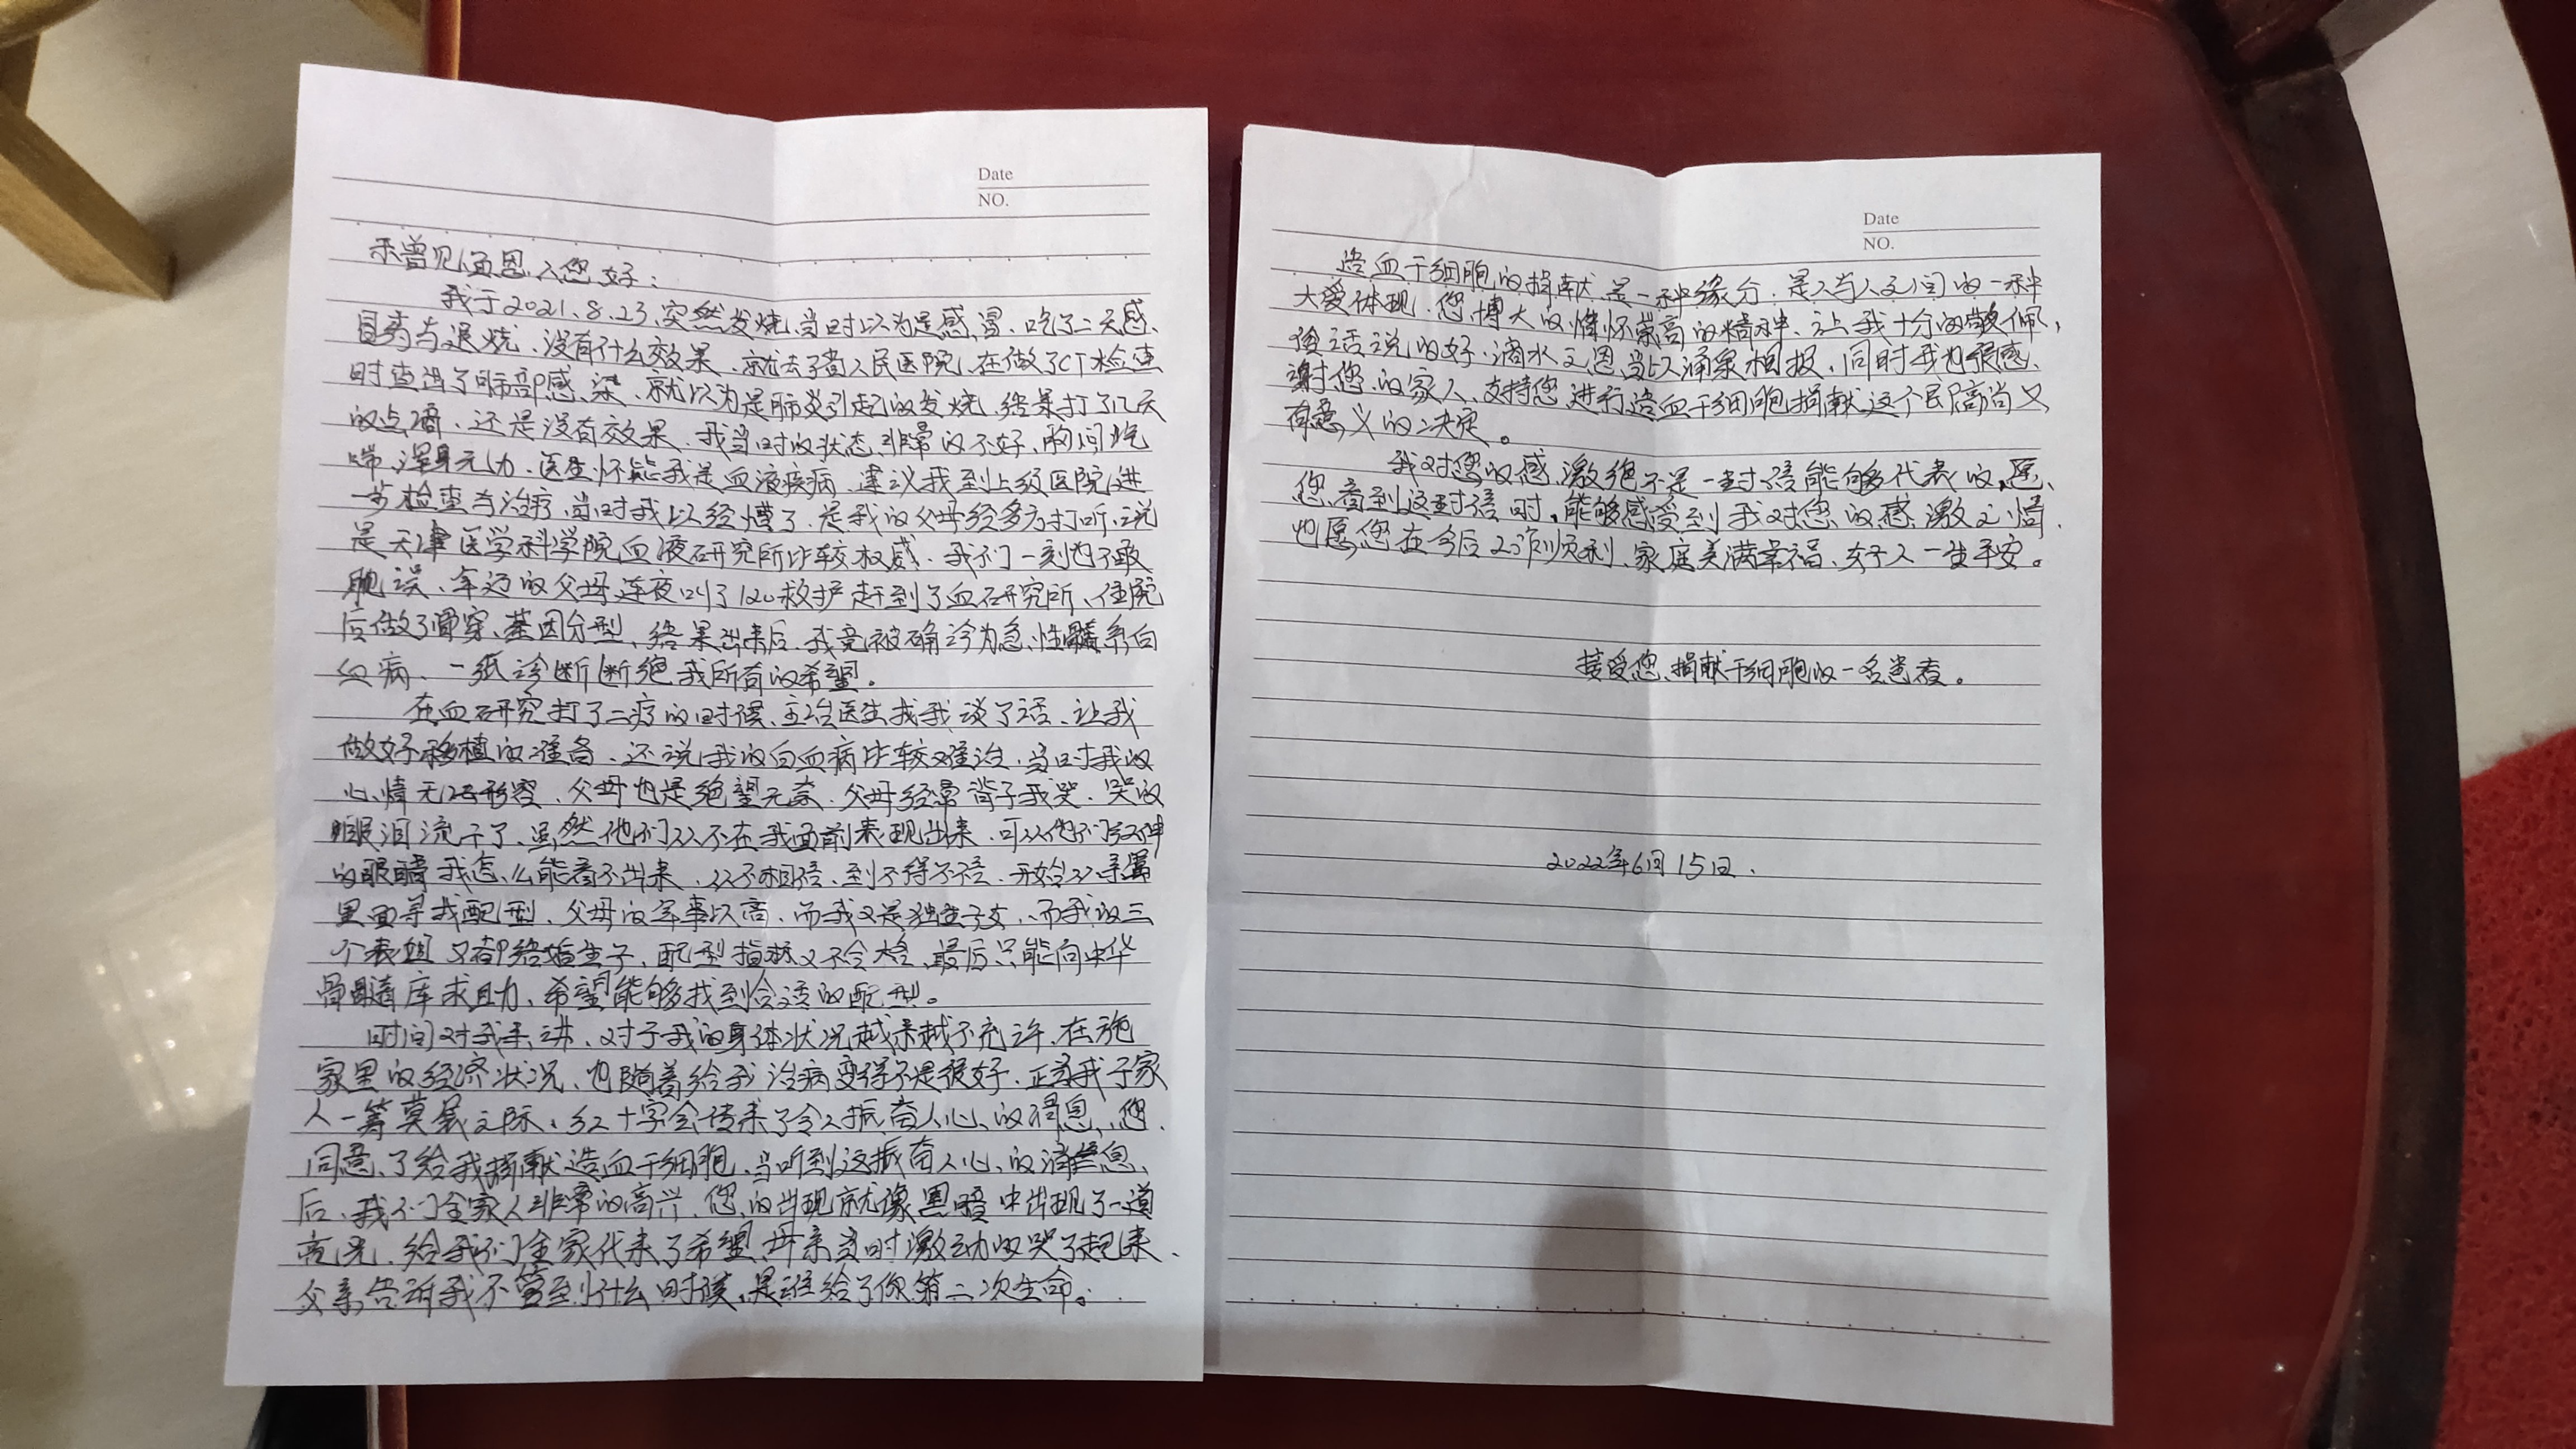 Date
NO.
未曾见面恩人您好：
我于2021.8.23突然发烧,当时以为是感冒.吃了二天感
冒药与退烧.没有什么效果.就去了省人民医院,在做了CT检查
时查出了肺部感染.就以为是肺炎引起的发烧.结果打了几天
的点滴.还是没有效果.我当时的状态非常的不好,胸闷
喘,浑身无力.医生怀疑我是血液疾病.建议我到上级医院进
一步检查与治疗.当时我以经懵了.是我的父母经多方打听,说
是天津医学科学院血液研究所比较权威.我们一刻也不敢
误、年迈的父母连夜叫了120救护赶到了血研究所、住院
后做了骨穿、基因分型、结果出来后.我竟被确诊为急性髓系白
血病、一纸诊断断绝我所有的希望。
在血研究打了二疗的时候、主治医生找我谈了话、让我
做好移植的准备.还说我的白血病比较难治.当时我的
心情无法形容.父母也是绝望无奈.父母经常背于我哭.哭的
眼泪流干了.虽然他们从不在我面前表现出来.可从他们红肿
的眼睛我怎么能看不出来.从不相信、到不得不信.开始从亲属
里面寻找配型、父母的年事以高.而我又是独生子女、而我的三
个表姐又都结婚生子、配型指标又不合格、最后只能向中华
骨髓库求助、希望能够找到合适的配型。
时间对我来讲、对于我的身体状况越来越不允许、在
家里的经济状况、也随着给我治病变得不是很好.正当我于家
人一筹莫展之际、红十字会传来了令人振奋人心的消息、您
同意了给我捐献造血干细胞.当听到这振奋人心的消息
后、我们全家人非常的高兴.您的出现就像黑暗中出现了一道
亮光.给我们全家代来了希望、母亲当时激动的哭了起来、
父亲告诉我不管到什么时候、是谁给了你第二次生命。
Date
NO.
造血干细胞的捐献是一种缘分.是人与人之间的一种
大爱体现.您博大的情怀崇高的精神、让我十分的敬佩,
俗话说的好.滴水之恩当以涌泉相报.同时我也很感
谢您的家人、支持您进行造血干细胞捐献这个高尚又
有意义的决定。
我对您的感激绝不是一封信能够代表的,愿
您看到这封信时,能够感受到我对您的感激之情.
也愿您在今后工作顺利、家庭美满幸福、好人一生平安。
接受您捐献干细胞的一名患者。
2022年6月15日.